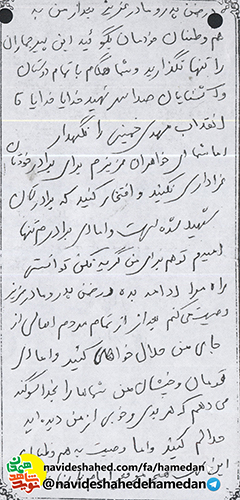 و ضمن پدر و مادر عزیز دیدار من به
هم وطنان عزیزمان بگوئید این پیر جماران
را تنها نگذارید و شما هنگام با تمام دوستان
و آشنایان صدا بزنید خدایا خدایا تا
انقلاب مهدی خمینی را نگهدار
اما شما ای خواهران عزیزم برای برادر خودتان
عزاداری نکنید و افتخار کنید که برادرتان
شهید شده است و اما ای برادرم تنها
امیدم تو هم برای من گریه نکن توانستی
راه مرا ادامه بده و ضمن پدر و مادر عزیز
وصیت می کنم بعد از از تمام مردم اهالی از
جای من حلال خواهی کنید و اما ای
قومان و خویشان من شما را بخدا سوگند
می دهم که هر بدی و خوبی از من دیده اید
حلالم کنید و اما وصیت به هم وطنان
این
navideshahed.com/fa/hamedan
@navideshahedehamedan